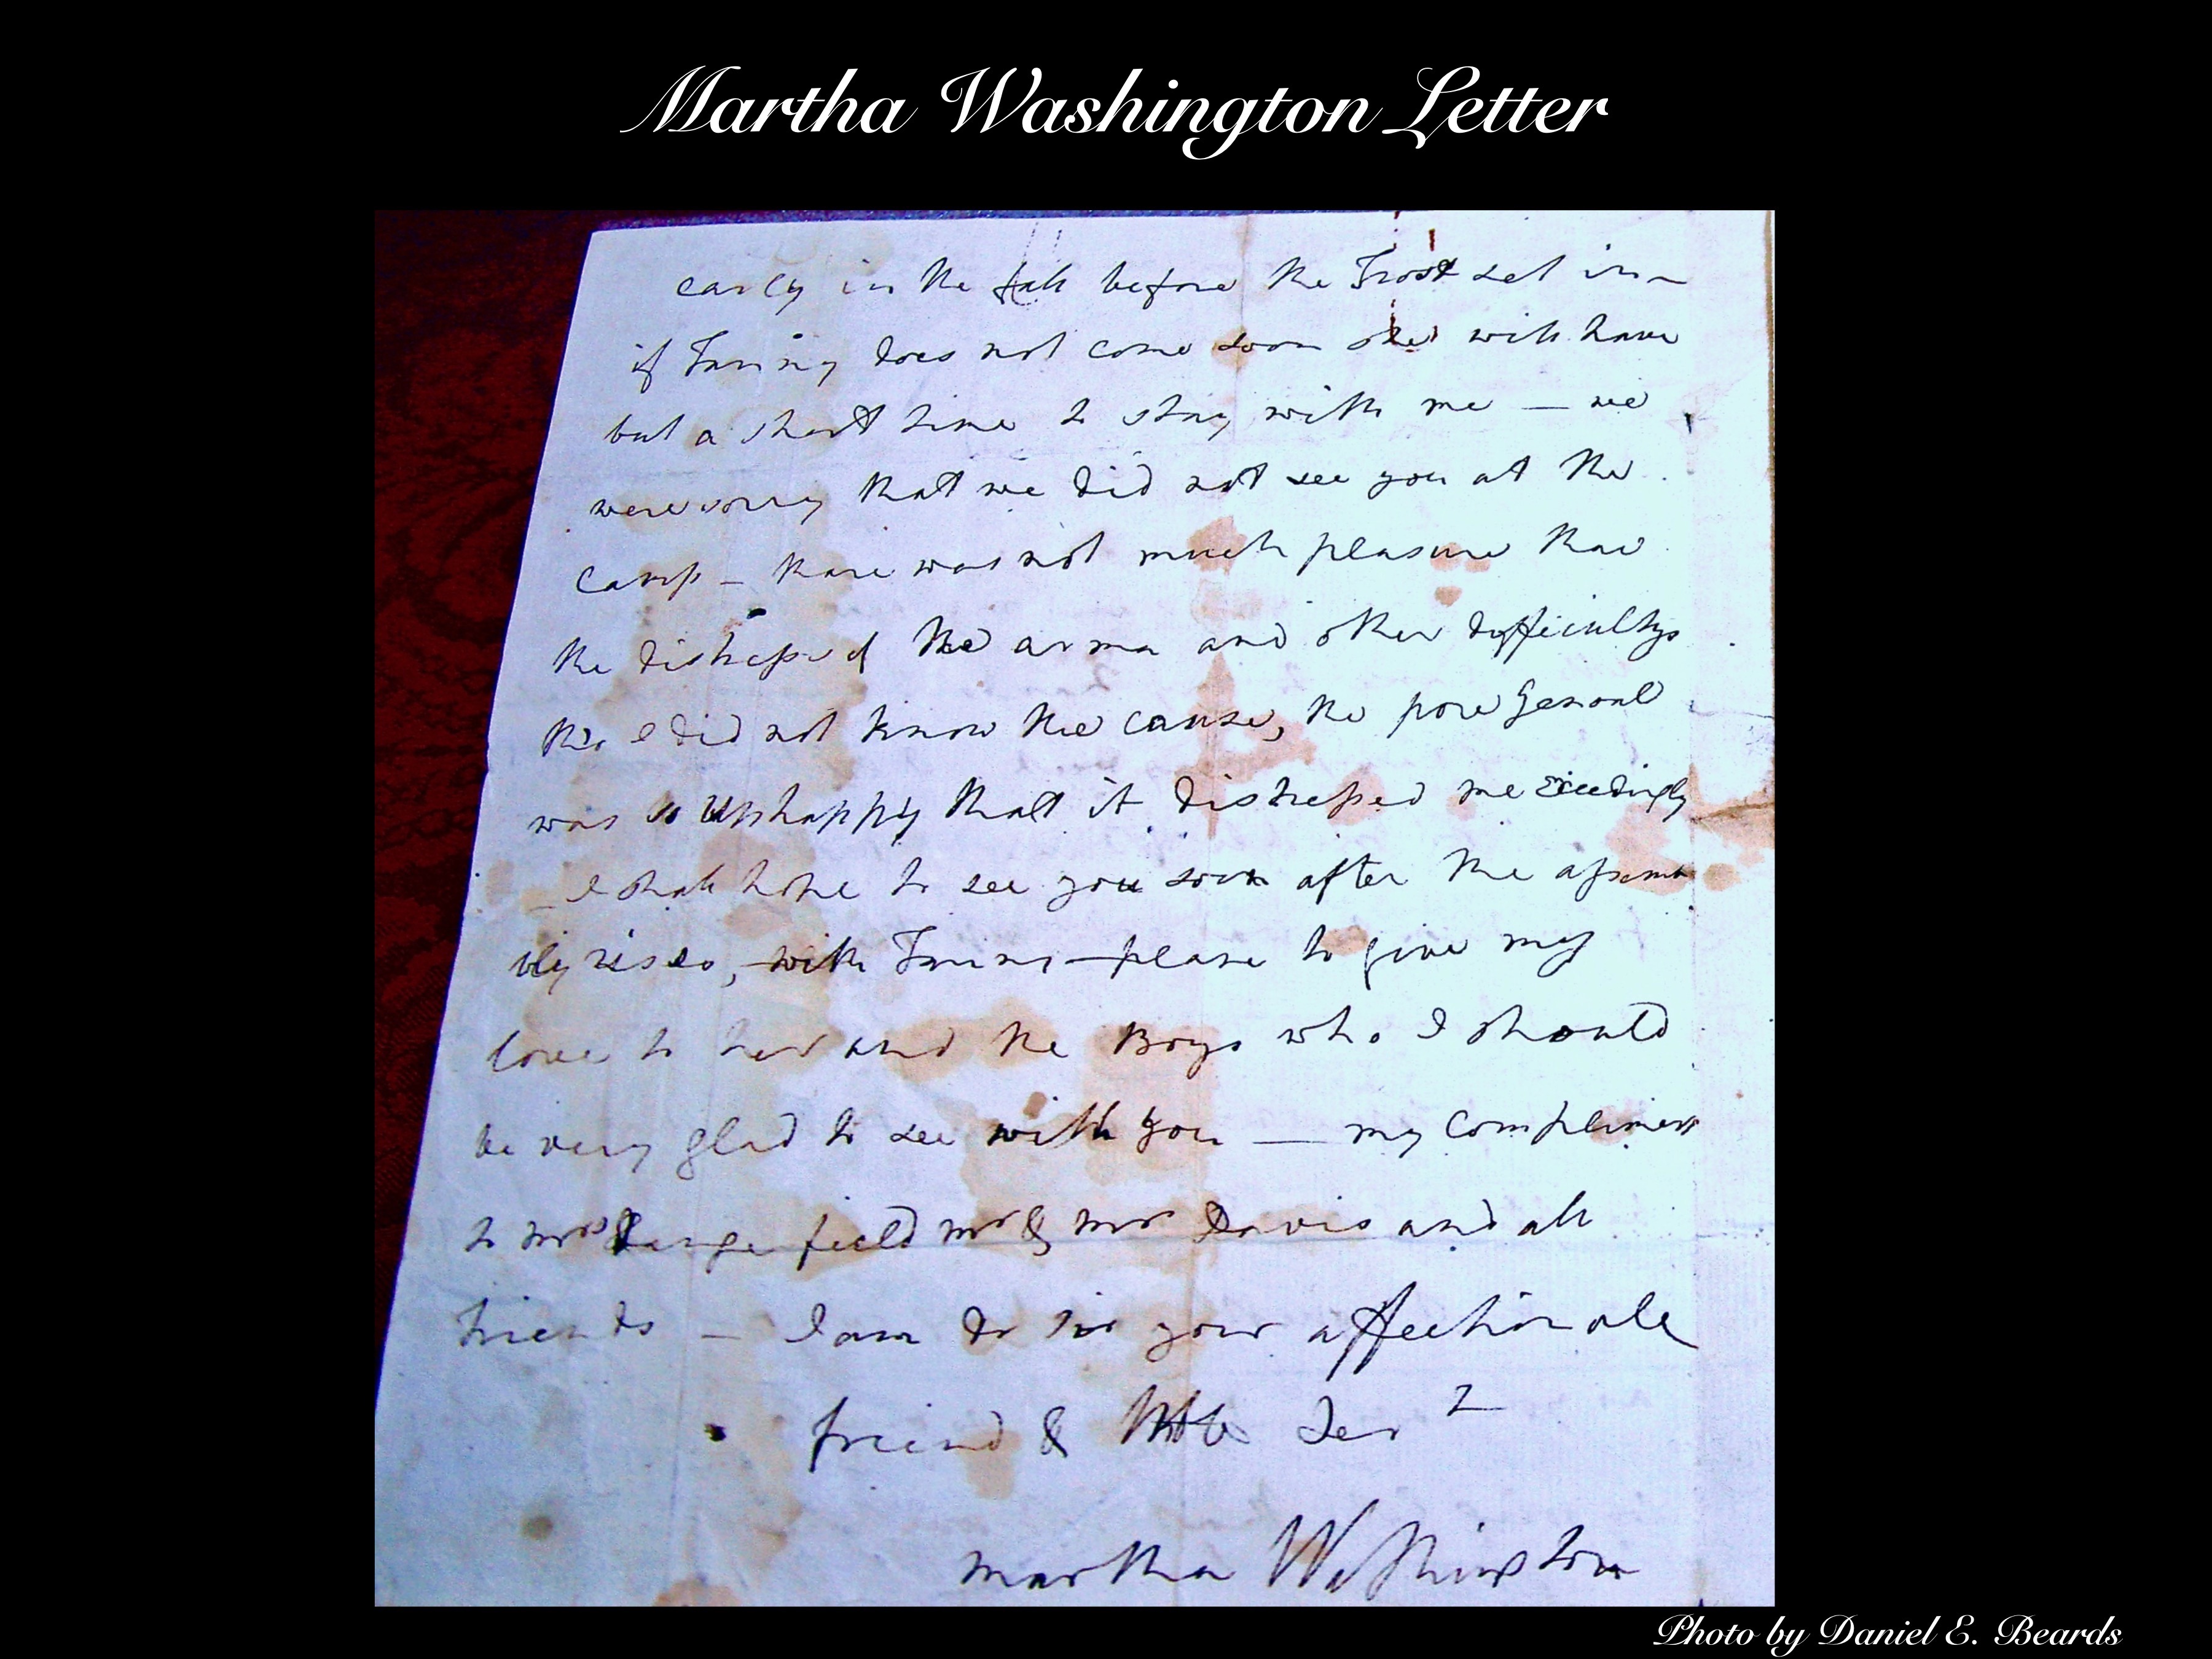 Martha Washington Letter
early in the fall before the Frost set in
if Fanny does not come soon she will have
but a short time to stay with me — we
were sorry that we did not see you at the
camp — thare was not much pleasure thar
the distress of the arma and other difficultys
tho I did not know the cause, the pore General
was so unhappy that it distressed me exceedingly
— I shall hope to see you soon after the assem
bly rises, with Fanny — please to give my
love to her and the Boys who I should
be very glad to see with you — my compliments
to mrs Dangerfield mr & mrs Davis and all
friends — I am dr sir your affectionate
friend & Hble Ser
martha Washington
Photo by Daniel E. Beards